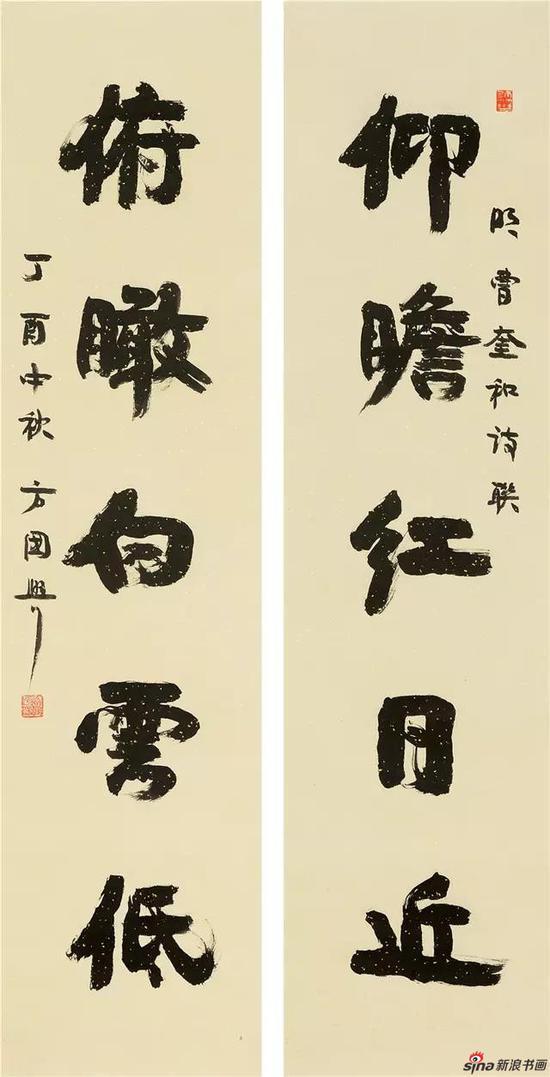 明曹奎和诗联
仰瞻红日近
俯瞰白雲低
丁酉中秋 方国兴
sina新浪书画